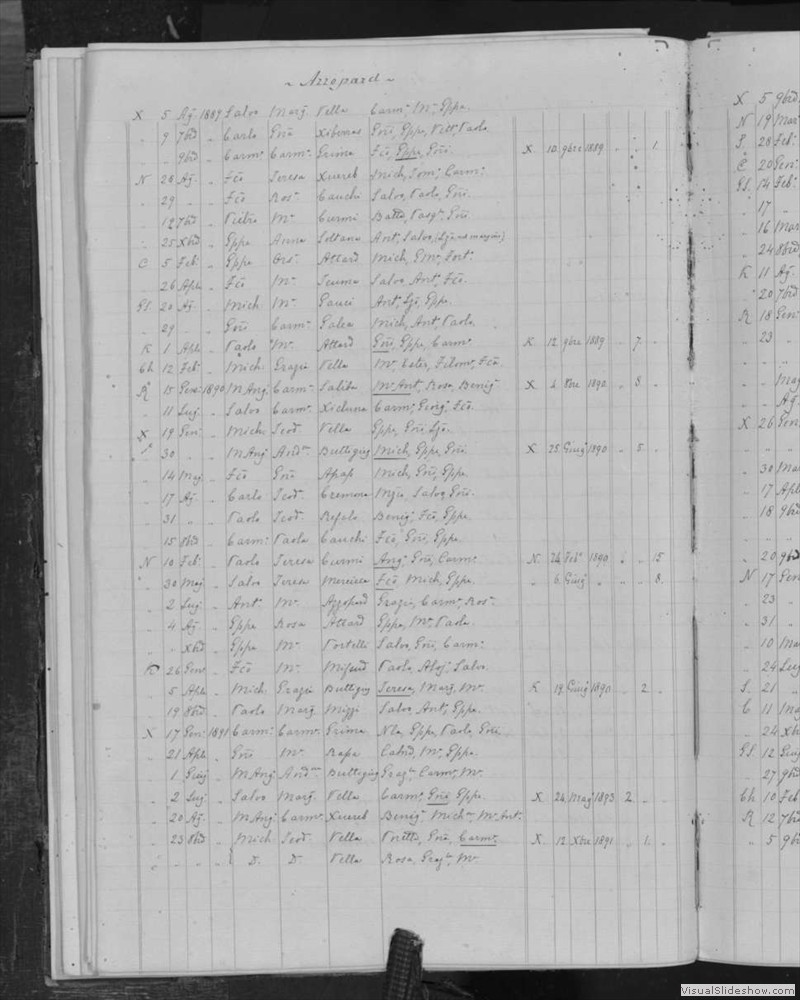 ~ Azzopard ~
X 5 Ag. 1889 Salvo Marg. Vella Carmo. Ma. Eppa.
" 9 7brd " Carlo Giõa Xiberras Giõi, Eppa, Vitta. Paola.
" " 9brd " Carmo. Carma. Grima Fcõ Eppa, Giõi. X 10 9bre 1889 " " 1.
N 28 Ag. " Fcõ Teresa Xuereb Mich. Toma. Carmo.
" 29 " " Fcõ Rosa. Cauchi Salvo, Paolo, Giõi.
" 12 7brd " Pietro Ma. Curmi Batta, Pasqe. Giõi
" 25 Xbrd " Eppe Anna Soltana Anto. Salvo
C 5 Feb. " Eppe Attard Mich.
" 26 Aple " Fcõ Ma. Salvo Anto. Fcõ.
Gl. 20 Ag. " Mich. Ma. Gauci Anto. Eppe.
" 29 " " Giõi Carma. Galea Mich, Anto. Paolo.
K 1 Aple " Paolo Ma. Attard Giõi, Eppe, Carmo. K 12 9bre 1889 " 7. "
Ch 12 Feb. " Mich. Grazia Vella Ma. Ester, Filoma. Fcã
R 15 Gen. 1890 M.Ang. Carma. Saliba Ma. Ant. Rosa, Benig. X 4 8bre 1890 " 8. "
" 11 Lug. " Salvo Carma. Xicluna Carmo. Giorg. Fcõ.
X 19 Gen. " Mich. Teod. Vella Eppe, Giõi
" 30 " " M.Ang. Buttigieg Mich, Eppe, Giõi X 25 Giug. 1890 " 5. "
" 14 Mag. " Fcõ Giõa Mich, Giõi, Eppe.
" 17 Ag. " Carlo Teod. Cremona Salvo, Giõi.
" 31 " " Paolo Teod. Refalo Benig. Fcõ, Eppe
" 15 8brd " Carmo. Paola Cauchi Fcõ, Giõi, Eppe.
N 10 Feb. " Paolo Teresa Curmi Ang. Giõi, Carmo. N. 24 Feb. 1890 " " 15
" 30 Mag. " Salvo Teresa Mercieca Fcõ, Mich, Eppe. " 6 Giug. " " " 8.
" 2 Lug. " Anto. Ma. Azzopard Grazia, Carma. Rosa.
" 4 Ag. " Eppe Rosa Attard Eppa, Ma. Paola
" " Xbrd " Eppe Ma. Portelli Salvo, Giõi, Carmo.
K 26 Gen. " Fcõ Ma. Mifsud Paolo, Aloj. Salvo.
" 5 Aple " Mich Grazia Buttigieg Teresa, Marg. Ma. K 19 Giug. 1890 " 2 "
" 19 8brd " Paolo Marg. Mizzi Salvo Anto. Eppe.
X 17 Gen. 1891 Carmo. Carma. Grima Nla, Eppe, Paolo, Giõi
" 21 Aple " Giõi Ma. Rapa Ma. Eppa.
" 1 Giug. " M.Ang. Buttigieg Grazia. Carma. Ma.
" 2 Lug. " Salvo Marg. Vella Carmo. Giõi Eppe. X. 24 Mag. 1893 2 " "
" 20 Ag. " M.Ang. Carma. Xuereb Benig. Micha. Ma. Ant.
" 23 8brd " Mich Teod. Vella Giõa, Carma. X. 12 Xbre 1891 " 1. "
" " " " { D. D. Vella Rosa, Grazia. Ma.
X 5 9brd
N 19 Mar
S. 28 Feb.
C 20 Gen.
Gl. 14 Feb.
" 17 "
" 16 Mar
" 24 8brd
K 11 Ag.
" 20 7brd
R 18 Gen.
" 23 "
" " "
" " Mag
" " Ag.
X 26 Gen.
" " "
" 30 Mar
" 17 Aple
" 18 9brd
" " "
" 20 9brd
N 17 Gen.
" 23 "
" 31 "
" 10 Mar
" 24 Lug
S. 21 "
C 11 Mag
" 24 Xb
Gl. 12 Giug
" 27 9brd
Ch 10 Feb
R 12 7brd
" 5 9brd
VisualSlideshow.com